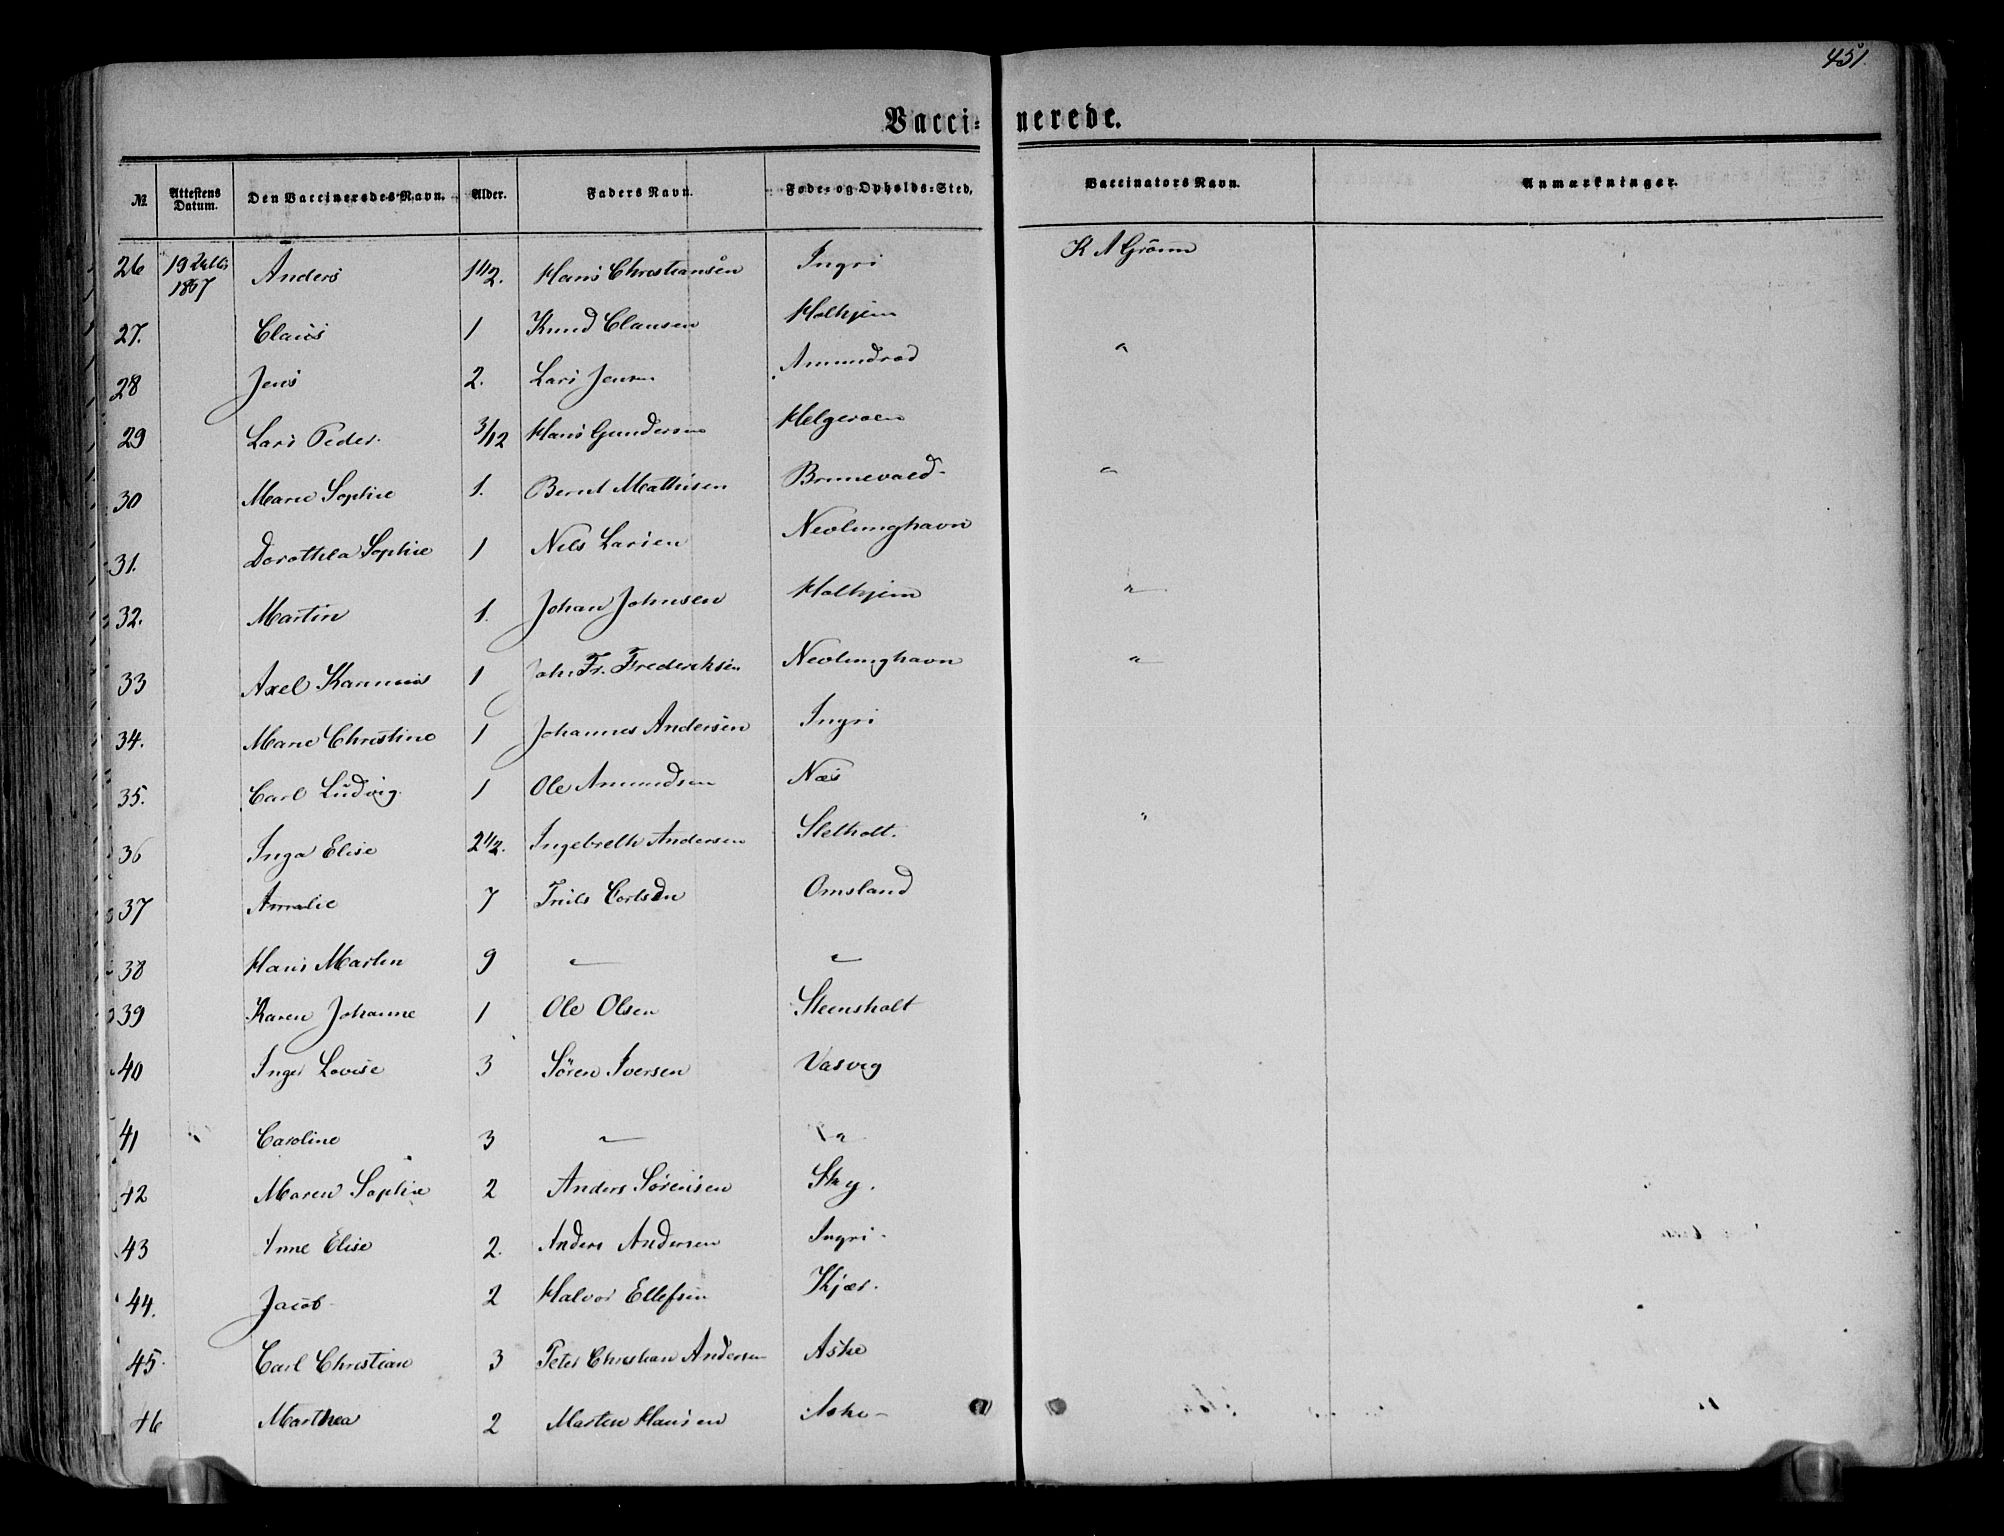 451.
Vacci- nerede.
№ Attestens Datum. Den Vaccineredes Navn. Alder. Faders Navn. Føde- og Opholds-Sted, Vaccinators Navn. Anmærkninger.
26 19 1867 Anders 1 1/2. Hans Christiansen Ingri K A Grönn
27. Claus 1 Knud Clausen Holhjem
28 Jens 2. Lars Jensen Amundrød "
29 Lars Peder. 3/12 Hans Gundersen Helgeroen
30 Maren Sophie 1. Bernt Mathisen Brunevald "
31. Dorothea Sophie 1 Nils Larsen Nevlunghavn
32. Martin 1. Johan Johnsen Holhjem "
33 Axel Rasmus 1 Joh. Fr. Frederiksen Nevlunghavn "
34. Maren Christine 1 Johannes Andersen Ingri
35. Carl Ludvig. 1 Ole Amundsen Næs
36 Inga Elise 2 1/2. Ingebreth Andersen Sletholt. "
37 Amalie 7 Carlsen Omsland
38 Hans Martin 9 " "
39 Karen Johanne 1 Ole Olsen Steensholt
40 Inger Lovise 3 Sören Iversen Vasvig
41 Caroline 3 " "
42 Maren Sophie 2 Anders Sörensen Sky.
43 Anne Elise 2. Anders Andersen Ingri
44. Jacob 2 Halvor Ellefsen Kjær.
45 Carl Christian 3 Peter Christian Andersen Aske
46 Marthea 2 Martin Hansen Aske